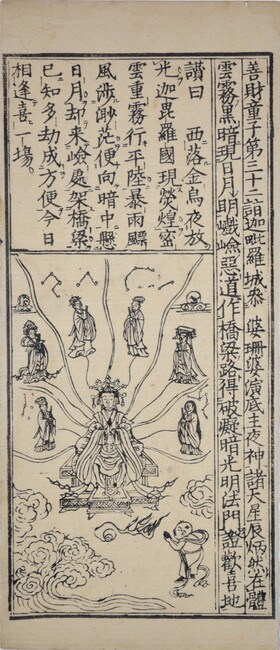 善財童子第三十二詣迦毗羅城叅婆珊婆演底主夜神諸大星辰炳然在體
雲霧黑暗現日月明嶮惡道作橋梁路得破癡暗光明法門證歡喜地
讚曰 西落金烏夜放
光迦毗羅國現熒煌密
雲重霧行平陸暴雨飃
風渺茫便向暗中懸
日月却来嶮處架橋梁
已知多劫成方便今日
相逢喜一場